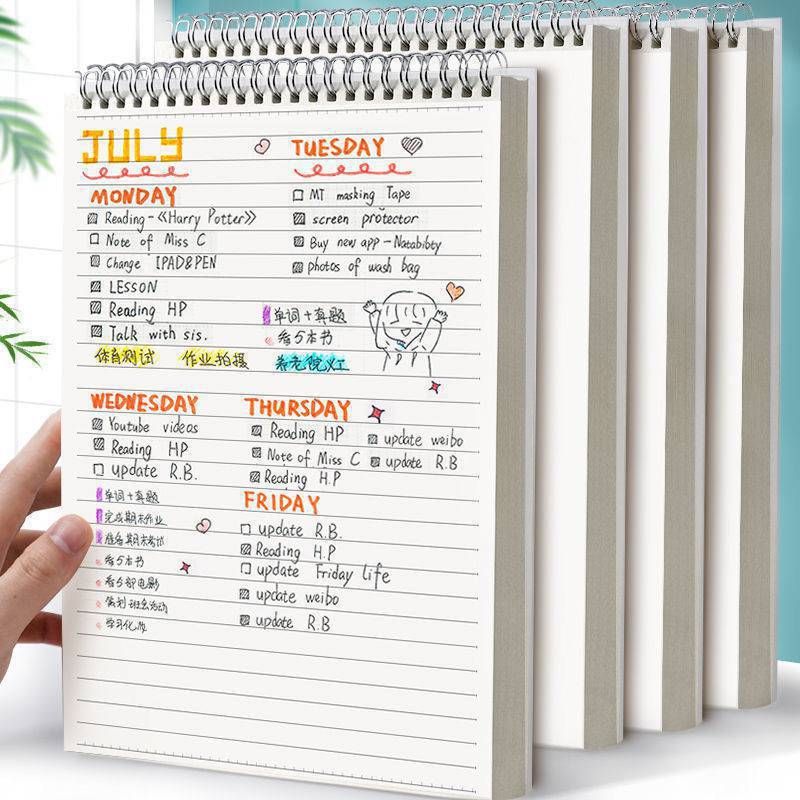 JULY
MONDAY
Reading-《Harry Potter》
Note of Miss C
Change IPAD&PEN
LESSON
Reading HP
Talk with sis.
体育测试 作业拍摄 养老院义工
TUESDAY
MT masking Tape
screen protector
Buy new app-Natabibty
photos of wash bag
单词+真题
看5本书
WEDNESDAY
Youtube videos
Reading HP
update R.B.
单词+真题
完成期末作业
准备期末考试
看5本书
看5部电影
策划班会活动
学习化妆
THURSDAY
Reading HP
update weibo
Note of Miss C
update R.B
Reading H.P
FRIDAY
update R.B.
Reading H.P
update Friday life
update weibo
update R.B